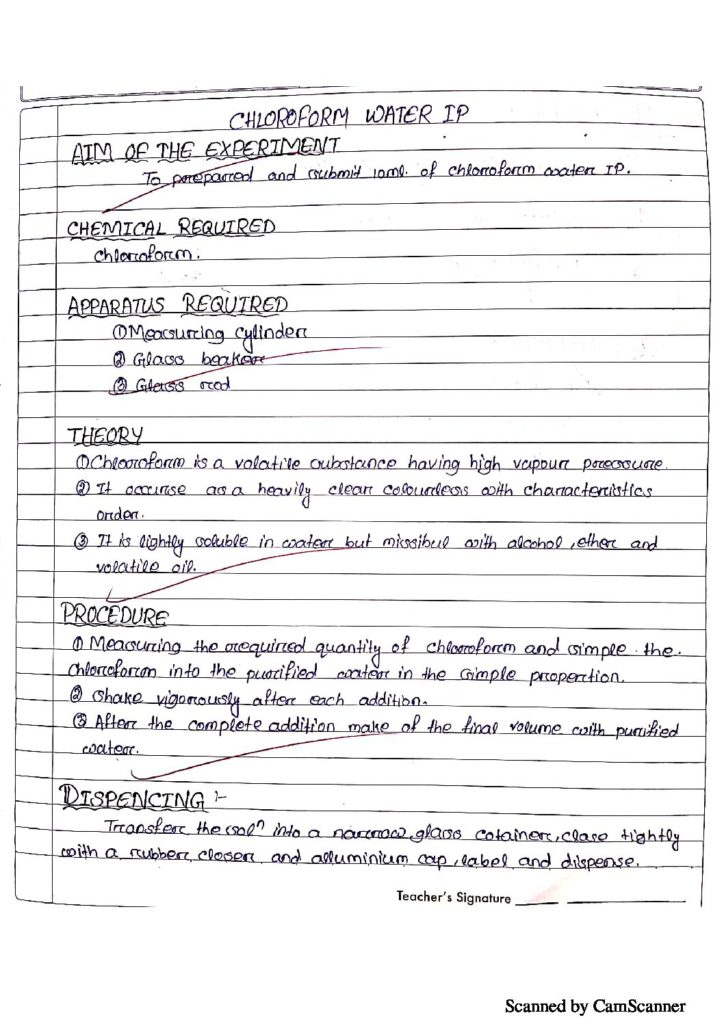 CHLOROFORM WATER IP
AIM OF THE EXPERIMENT
To preparred and submit 10ml. of chloroform water IP.
CHEMICAL REQUIRED
chloroform.
APPARATUS REQUIRED
①Measuring cylinder
② Glass beaker
③ Glass rod
THEORY
①Chloroform is a volatile substance having high vapour pressure.
② It occurse as a heavily clear colourless with characteristics
order.
③ It is lightly soluble in water but missibul with alcohol, ether and
volatile oil.
PROCEDURE
① Measuring the required quantity of chloroform and simple the.
chloroform into the purified water in the simple propertion.
② Shake vigorously after each addition.
③ After the complete addition make of the final volume with purified
water.
DISPENCING :-
Transfer the solⁿ into a narrow, glass cotainer, close tightly
with a rubber closer and alluminium cap, label and dispense.
Teacher's Signature
Scanned by CamScanner